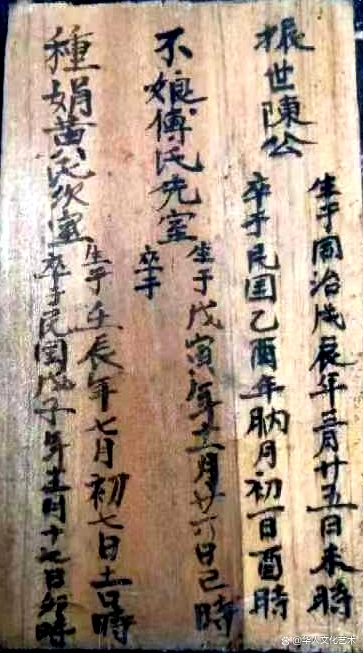 振世陳公
生于同治戊辰年三月廿五日未時
卒于民国乙酉年朒月初一日酉時
不娘傅氏先室
生于戊寅年十二月廿六日巳時
卒于
種娟黄氏次室
生于壬辰年七月初七日 時
卒于民国戊子年 月十七日 時
@华人文化艺术